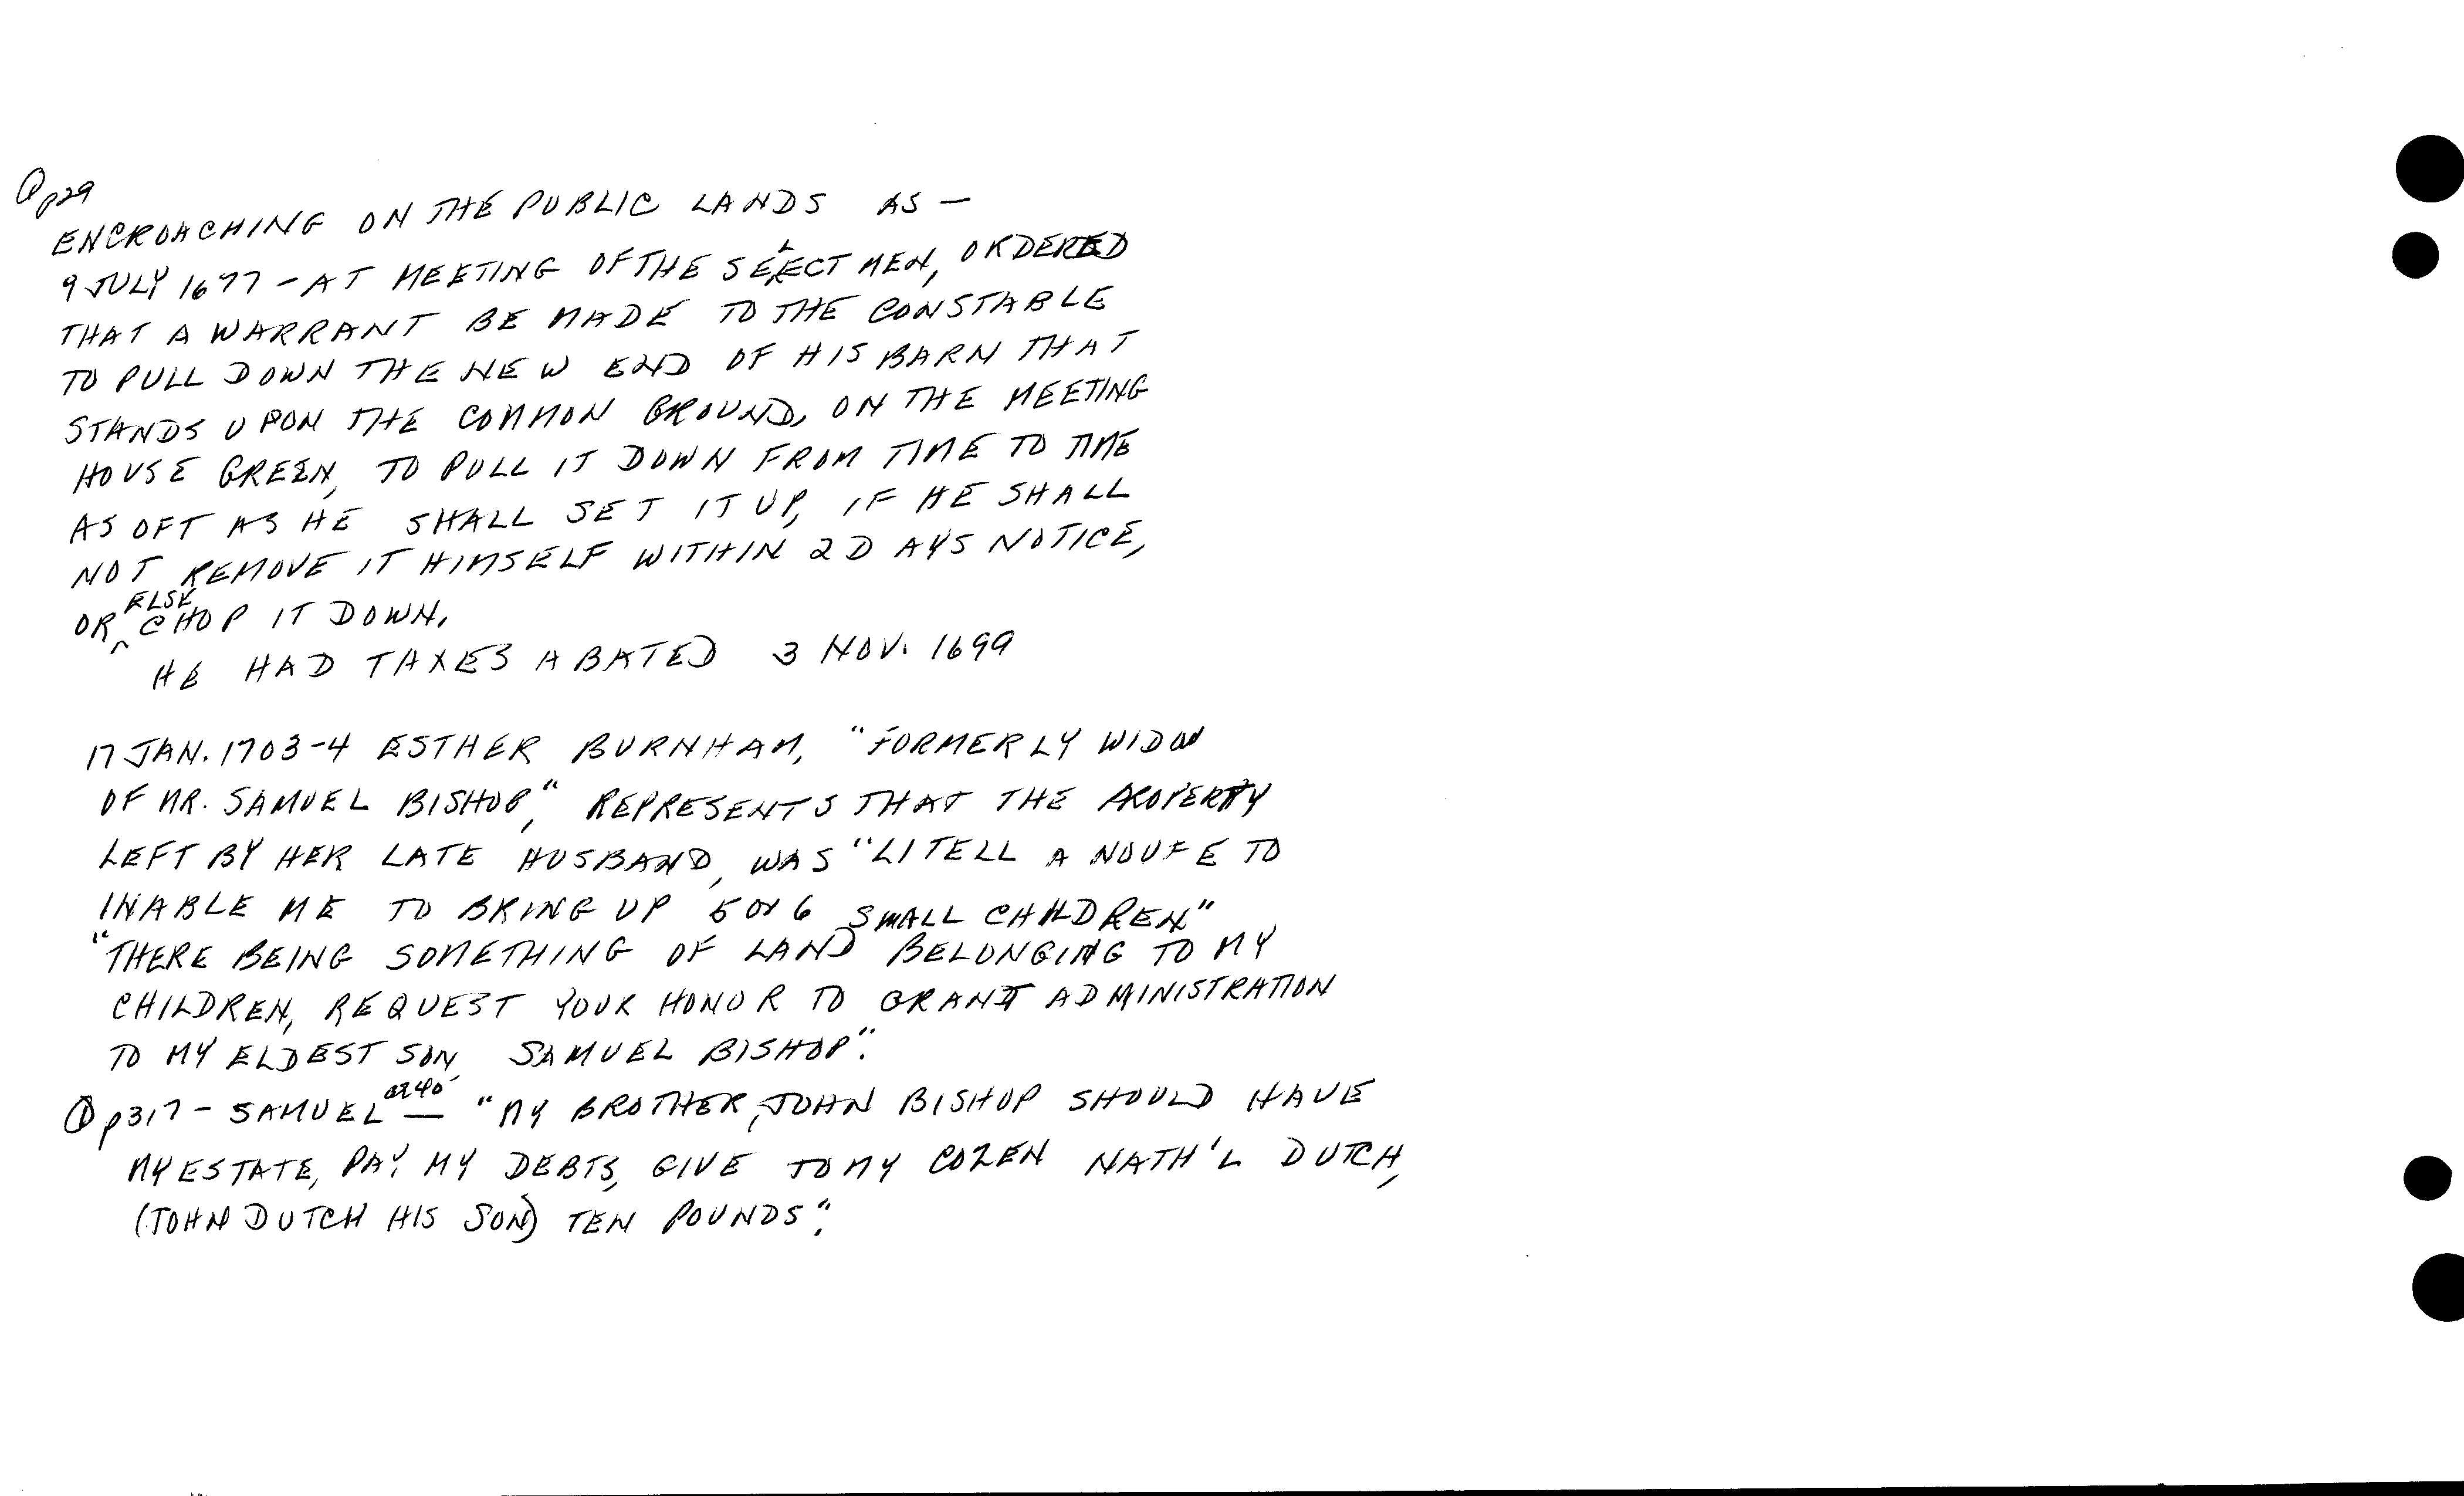 Q p29
ENCROACHING ON THE PUBLIC LANDS AS —
9 JULY 1677 - AT MEETING OF THE SELECT MEN, ORDERED
THAT A WARRANT BE MADE TO THE CONSTABLE
TO PULL DOWN THE NEW END OF HIS BARN THAT
STANDS UPON THE COMMON GROUND, ON THE MEETING
HOUSE GREEN, TO PULL IT DOWN FROM TIME TO TIME
AS OFT AS HE SHALL SET IT UP, IF HE SHALL
NOT REMOVE IT HIMSELF WITHIN 2 DAYS NOTICE,
OR ELSE CHOP IT DOWN.
HE HAD TAXES ABATED 3 NOV. 1699
17 JAN. 1703-4 ESTHER BURNHAM, "FORMERLY WIDOW
OF MR. SAMUEL BISHOP," REPRESENTS THAT THE PROPERTY
LEFT BY HER LATE HUSBAND, WAS "LITELL A NOUFE TO
INABLE ME TO BRING UP 5 or 6 SMALL CHILDREN"
"THERE BEING SOMETHING OF LAND BELONGING TO MY
CHILDREN, REQUEST YOUR HONOR TO GRANT ADMINISTRATION
TO MY ELDEST SON, SAMUEL BISHOP".
p317 - SAMUEL — "MY BROTHER, JOHN BISHOP SHOULD HAVE
MY ESTATE, PAY MY DEBTS, GIVE TO MY COZEN NATH'L DUTCH,
(JOHN DUTCH HIS SON) TEN POUNDS".